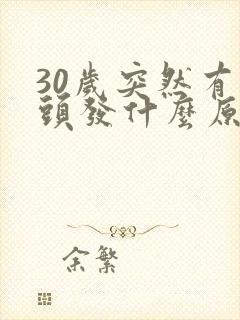 30歲突然有
頭發什麼原
余繁